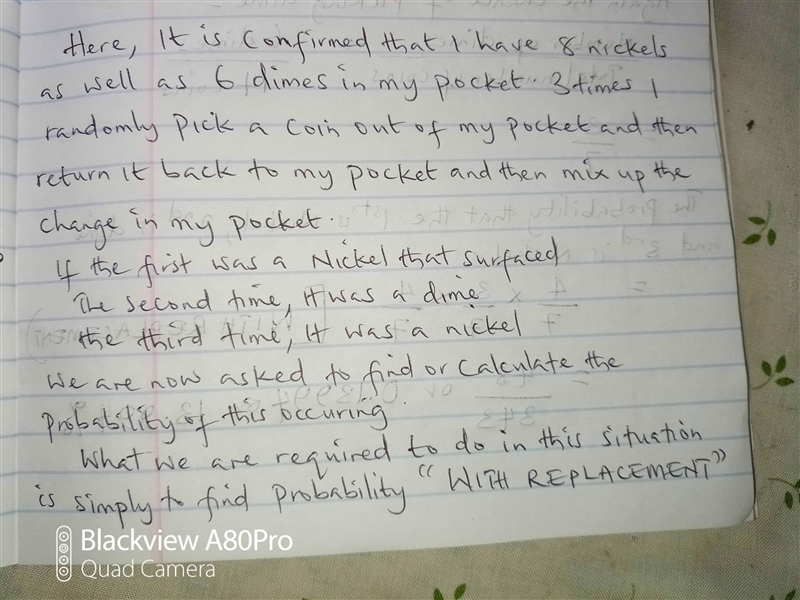 Here, It is Confirmed that I have 8 nickels
as well as 6 dimes in my pocket. 3 times I
randomly pick a coin out of my pocket and then
return it back to my pocket and then mix up the
change in my pocket.
If the first was a Nickel that surfaced
The second time, It was a dime
the third time, It was a nickel
We are now asked to find or Calculate the
probability of this occuring.
What we are required to do in this situation
is simply to find probability "WITH REPLACEMENT"
Blackview A80Pro
Quad Camera